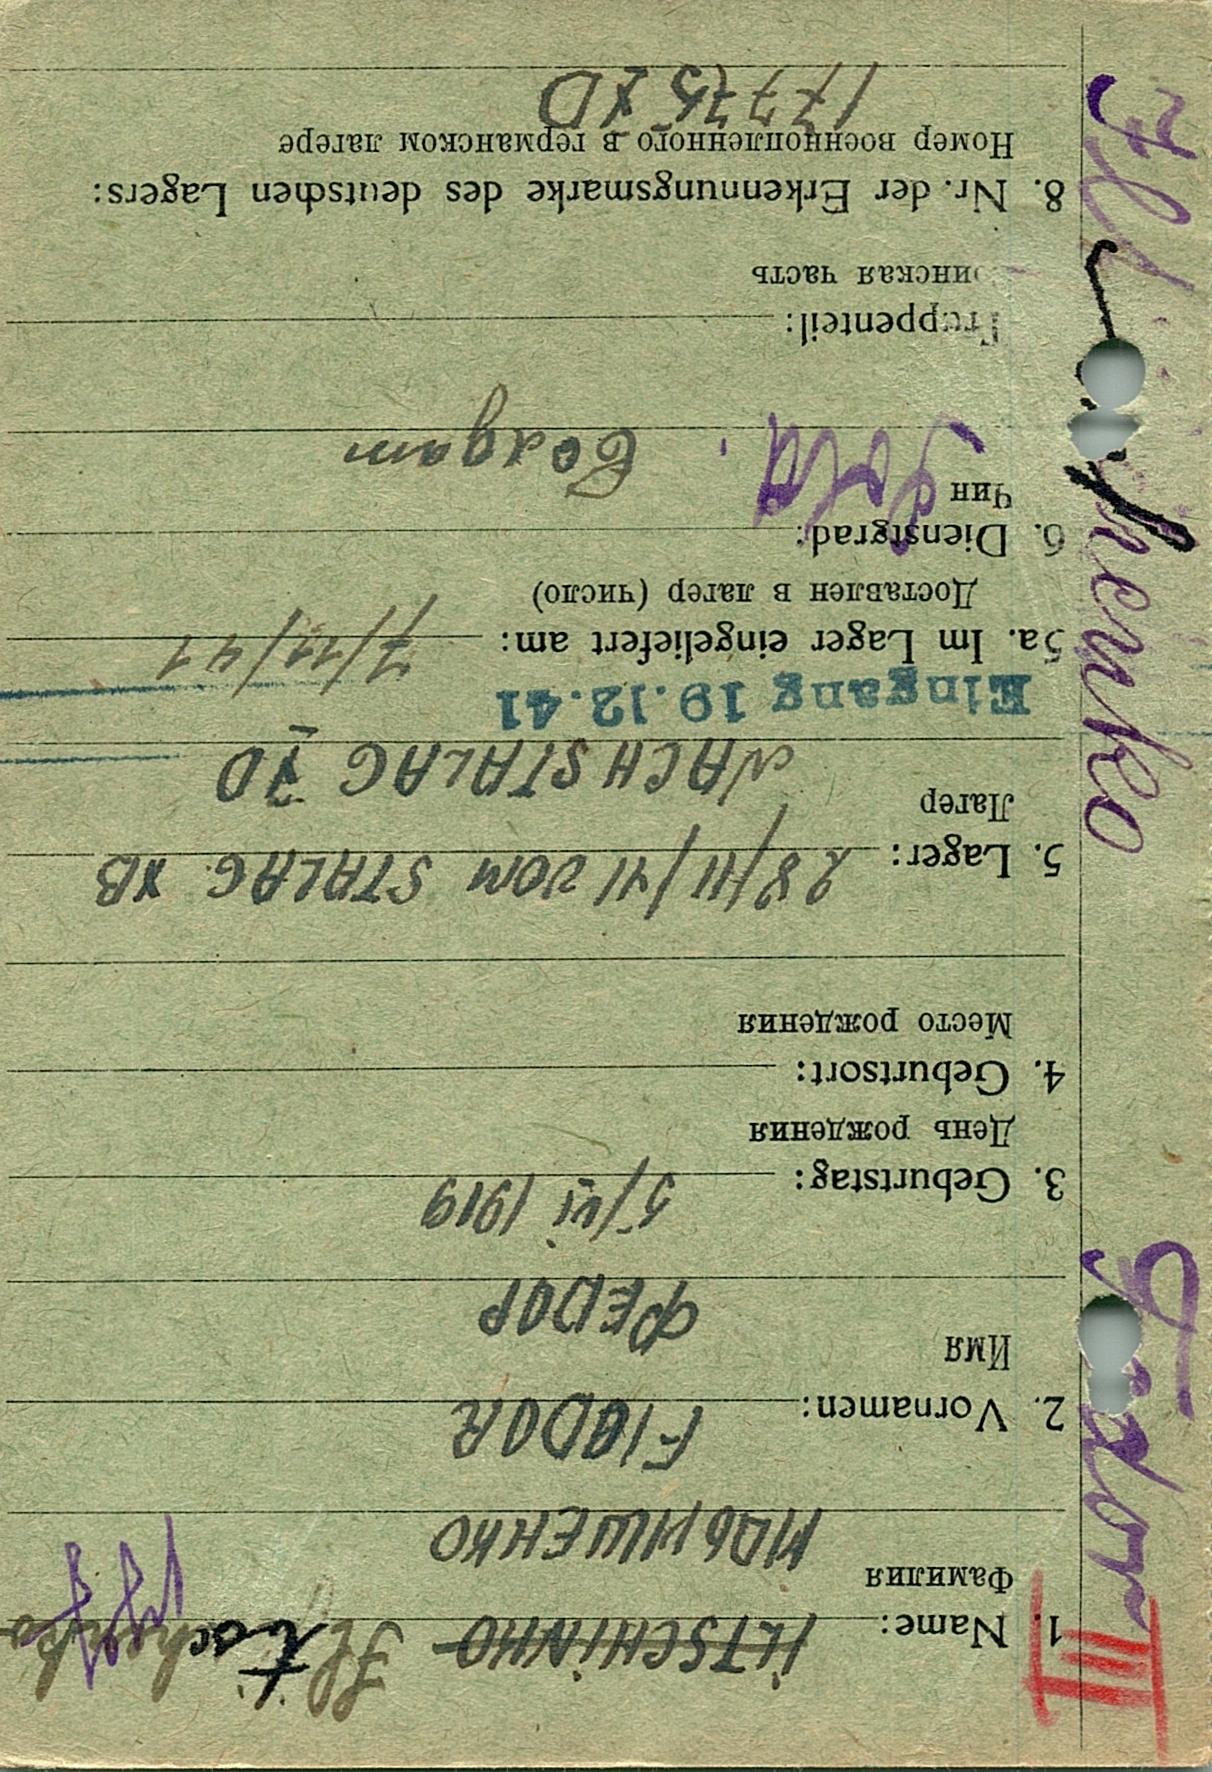 III
1. Name: ILTSCHINKO Iltschenko
Фамилия 177
ИЛЬИШЕНКО
2. Vornamen: FIODOR
Имя
ФЕДОР
3. Geburtstag: 5/VI 1919
День рождения
4. Geburtsort:
Место рождения
5. Lager: 28/11/41 VOM STALAG XB
Лагер
NACH STALAG XD
Eingang 19.12.41
5a. Im Lager eingeliefert am: 7/11/41
Доставлен в лагер (число)
6. Dienstgrad: Sold.
Чин
Truppenteil:
инская часть
8. Nr. der Erkennungsmarke des deutschen Lagers:
Номер военнопленного в германском лагере
17775 XD
Fedor